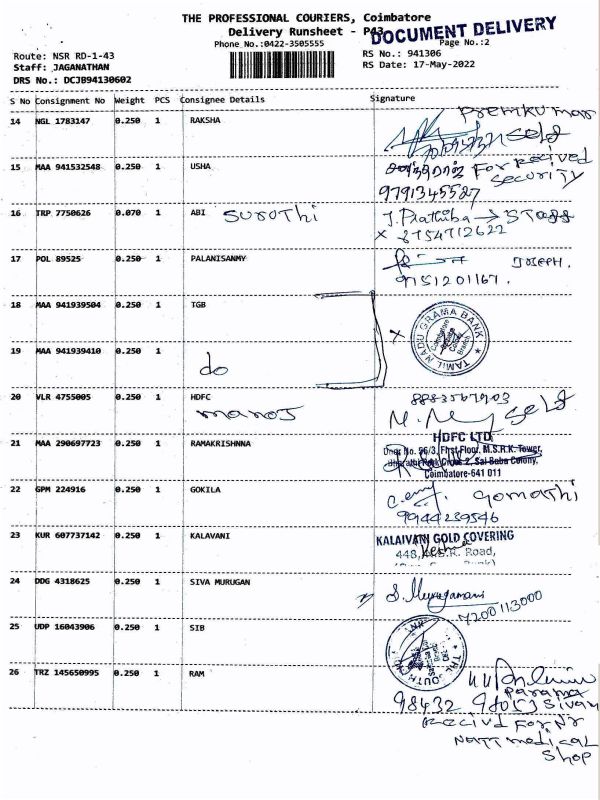 THE PROFESSIONAL COURIERS, Coimbatore
Delivery Runsheet - P43
DOCUMENT DELIVERY
Phone No.:0422-3505555
Page No.:2
Route: NSR RD-1-43
RS No.: 941306
Staff: JAGANATHAN
RS Date: 17-May-2022
DRS No.: DCJB94130602
S No Consignment No Weight PCS Consignee Details Signature
14 NGL 1783147 0.250 1 RAKSHA
Premkumar
Self
15 MAA 941532548 0.250 1 USHA
For Recived
Security
9791345587
16 TRP 7750626 0.070 1 ABI Suruthi
J. Prathiba → Staff
x 8754712622
17 POL 89525 0.250 1 PALANISANMY
Joseph.
9751201167.
18 MAA 941939504 0.250 1 TGB
TAMIL NADU GRAMA BANK
Coimbatore
Colony
Branch
19 MAA 941939410 0.250 1
do
20 VLR 4755005 0.250 1 HDFC
Manoj
8883567903
Self
21 MAA 290697723 0.250 1 RAMAKRISHNNA
HDFC LTD
Door No. 56/3, First Floor, M.S.R.K. Tower,
2, Sai Baba Colony,
Coimbatore-641 011
22 GPM 224916 0.250 1 GOKILA
Gomathi
9944239546
23 KUR 607737142 0.250 1 KALAVANI
KALAIVANI GOLD COVERING
448, Road,
24 DDG 4318625 0.250 1 SIVA MURUGAN
S. Murugamani
7200113000
25 UDP 16043906 0.250 1 SIB
THE SOUTH
26 TRZ 145650995 0.250 1 RAM
Parama
Sivan
98432 98053
Recived For Nr
Natt medical
Shop